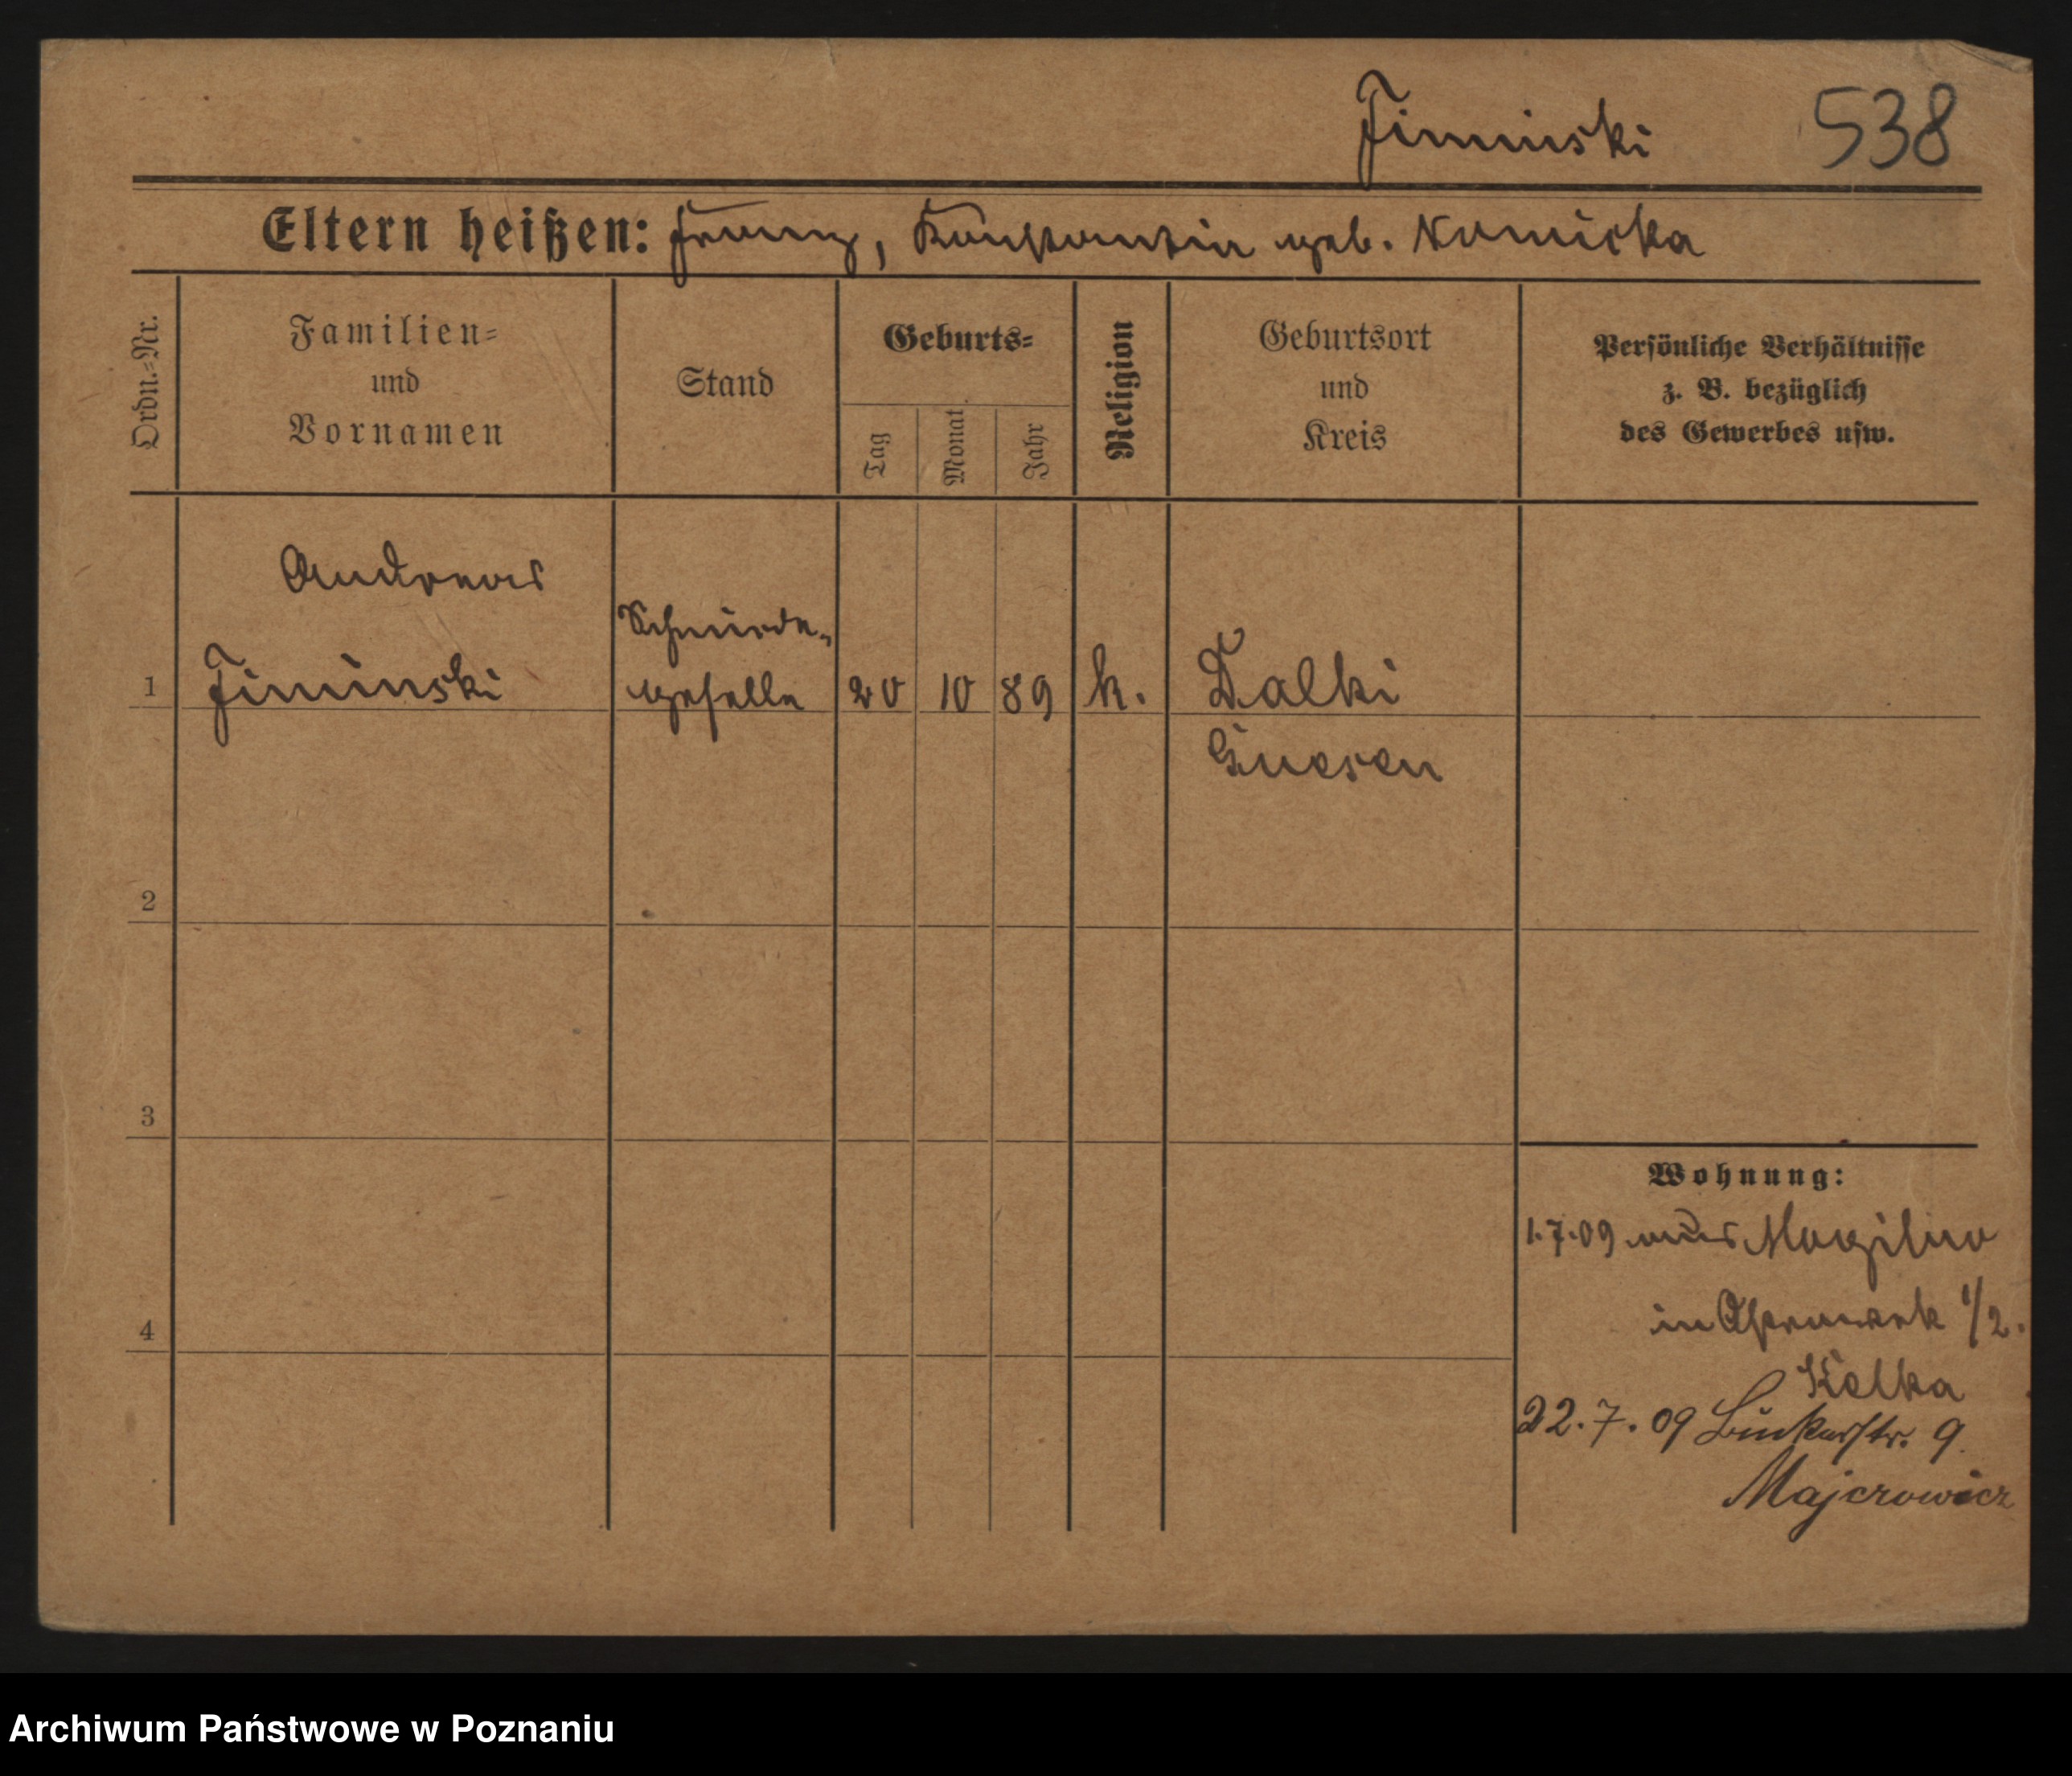 Jiminski 538
Eltern heißen: Franz, Konstantin geb. Nowicka
Ordn.=Nr.
Familien=
und
Vornamen
Stand
Geburts=
Tag
Monat
Jahr
Religion
Geburtsort
und
Kreis
Persönliche Verhältnisse
z. B. bezüglich
des Gewerbes usw.
Andreas
Schmiede-
1 Jiminski geselle 20 10 89 k. Dalki
Gnesen
2
3
Wohnung:
1.7.09 aus Mogilno
in 1/2.
4
Kolka
22.7.09 9
Majerowicz
Archiwum Państwowe w Poznaniu